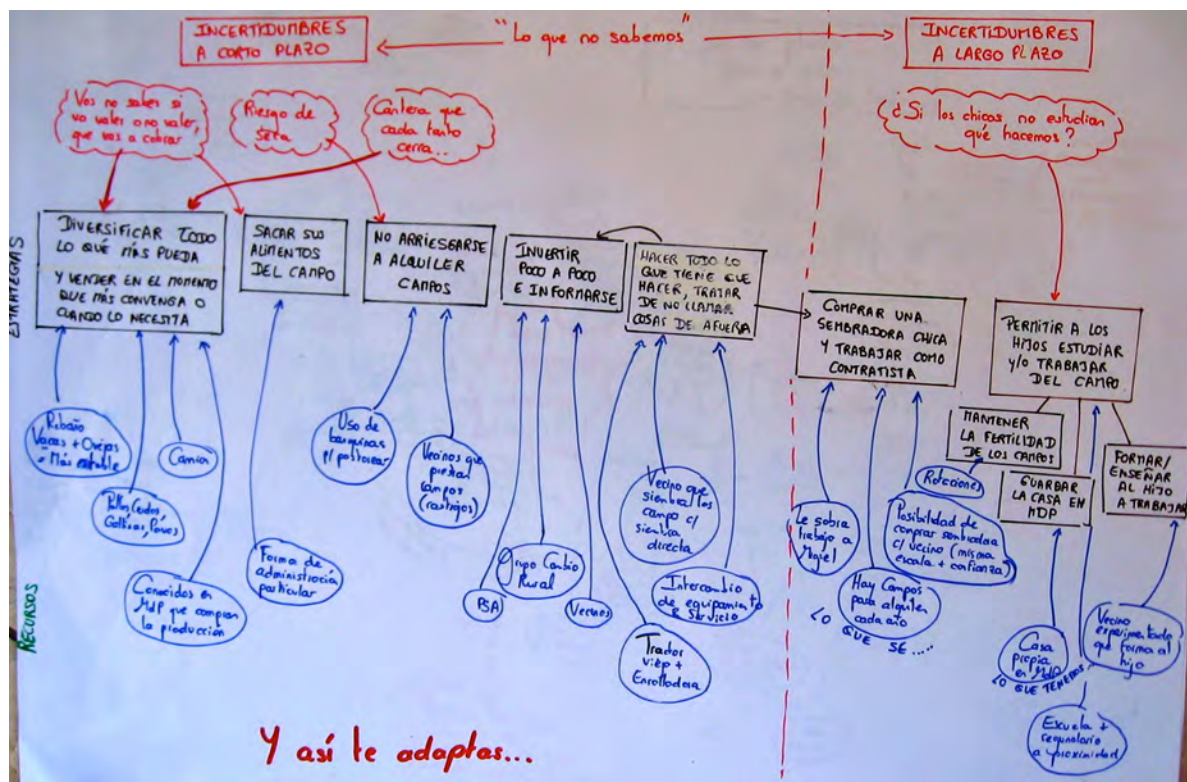 INCERTIDUMBRES
A CORTO PLAZO
"Lo que no sabemos"
INCERTIDUMBRES
A LARGO PLAZO
Vos no sabes si
va valer o no valer,
que vas a cobrar
Riesgo de
seca
Cantera que
cada tanto
cerra...
¿Si los chicos no estudian
qué hacemos?
ESTRATEGIAS
DIVERSIFICAR TODO
LO QUÉ MÁS PUEDA
Y VENDER EN EL MOMENTO
QUE MÁS CONVENGA O
CUANDO LO NECESITA
SACAR SUS
ALIMENTOS
DEL CAMPO
NO ARRIESGARSE
A ALQUILER
CAMPOS
INVERTIR
POCO A POCO
E INFORMARSE
HACER TODO LO
QUE TIENE QUE
HACER, TRATAR
DE NO LLAMAR
COSAS DE AFUERA
COMPRAR UNA
SEMBRADORA CHICA
Y TRABAJAR COMO
CONTRATISTA
PERMITIR A LOS
HIJOS ESTUDIAR
Y/O TRABAJAR
DEL CAMPO
MANTENER
LA FERTILIDAD
DE LOS CAMPOS
GUARBAR
LA CASA EN
MDP
FORMAR/
ENSEÑAR
AL HIJO
A TRABAJAR
RECURSOS
Rebaño
Vacas + Ovejas
= Más estable
Pollos, Cerdos,
Gallinas, Pavos
Camión
Conocidos en
MdP que compran
la producción
Forma de
administración
particular
Uso de
banquinas
p/ pastorear
Vecinos que
prestan
campos
(rastrojos)
PSA
Grupo Cambio
Rural
Vecinos
Vecino que
siembra los
campo c/
siembra
directa
Intercambio
de equipamiento
& servicio
Trador
viejo +
Enrolladora
Le sobra
trabajo a
Miguel
Hay Campos
para alquilar
cada año
LO QUE SÉ....
Rotaciones
Posibilidad de
comprar sembradora
c/ vecino (misma
escala + confianza)
Casa
propia
en MdP
LO QUE TENEMOS...
Vecino
experimentado
que forma al
hijo
Escuela +
a proximidad
Y así te adaptas...